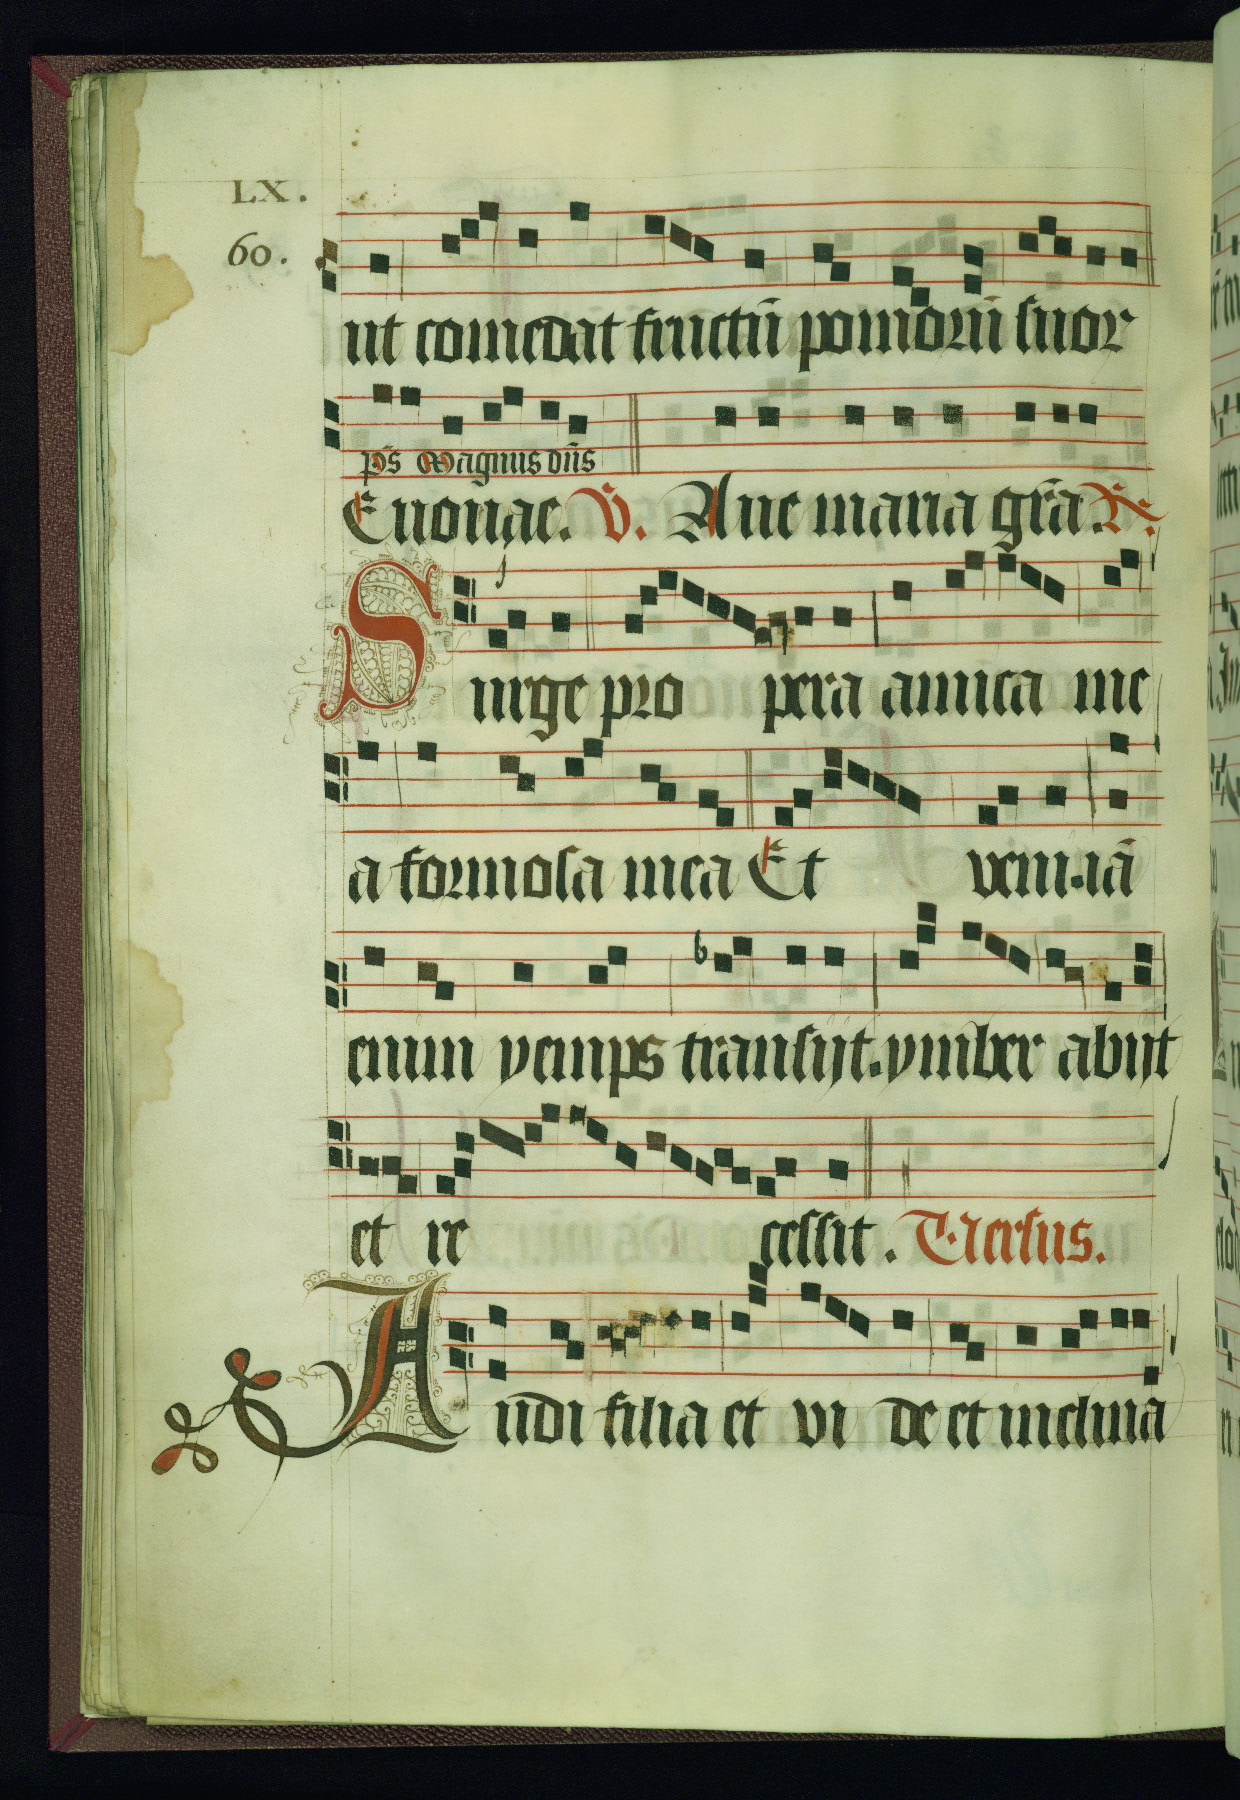 LX.
60.
ut comedat fructū pomorū suor
ps̄ Magnus dn̄s
Euouae. V. Aue maria gr̄a. R.
Surge propera amica me
a formosa mea Et veni. iā
enim yemps transijt. ymber abijt
et recessit. Versus.
Audi filia et vide et inclina